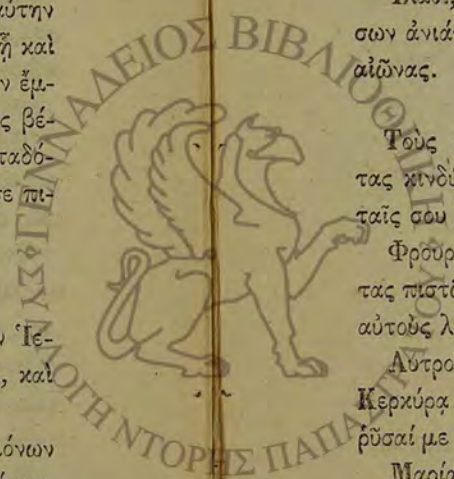 αὐτην
ῇ καὶ
ν ἔμ-
ς βέ-
ταδό-
ε πι-
ν Ἱε-
, καὶ
όνων
σων ἀνιά
αἰῶνας.
Τοὺς
τας κινδύ
ταῖς σου
Φρουρ
τας πιστῶ
αὐτοὺς λ
Λυτρο
Κερκύρᾳ
ῥῦσαί με
Μαρία
ΓΕΝΝΑΔΕΙΟΣ ΒΙΒΛΙΟΘΗΚΗ
ΣΥΛΛΟΓΗ ΝΤΟΡΗΣ ΠΑΠΑΣΤΡΑΤΟΥ